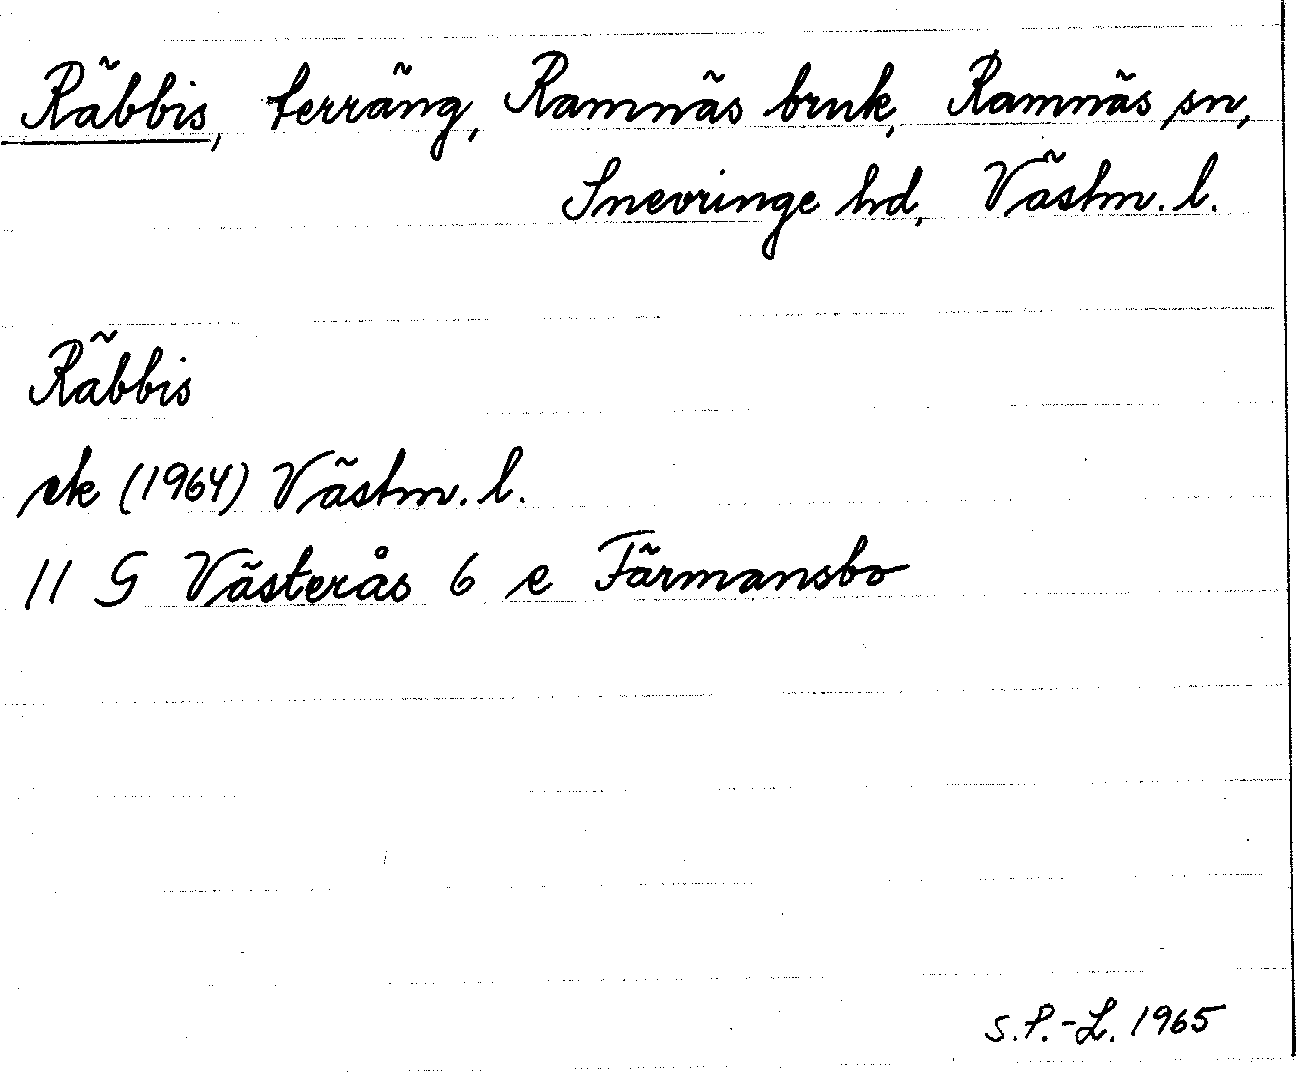 Räbbis, terräng, Ramnäs bruk, Ramnäs sn,
Snevringe hd, Västm. l.
Räbbis
ek (1964) Västm. l.
11 G Västerås 6 e Färmansbo
S.P.-L. 1965